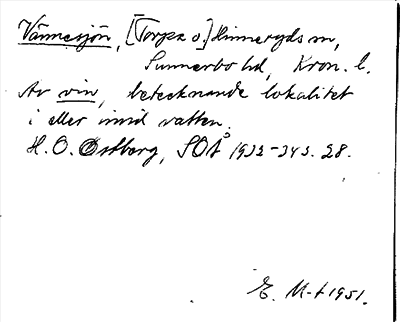 Vännesjön, [Torpa o.] Hinneryds sn,
Sunnerbo hd, Kron. l.
Av vin, betecknande lokalitet
i eller invid vatten.
H. O. Östberg, SOÅ 1932-343. 28.
E. M-t 1951.